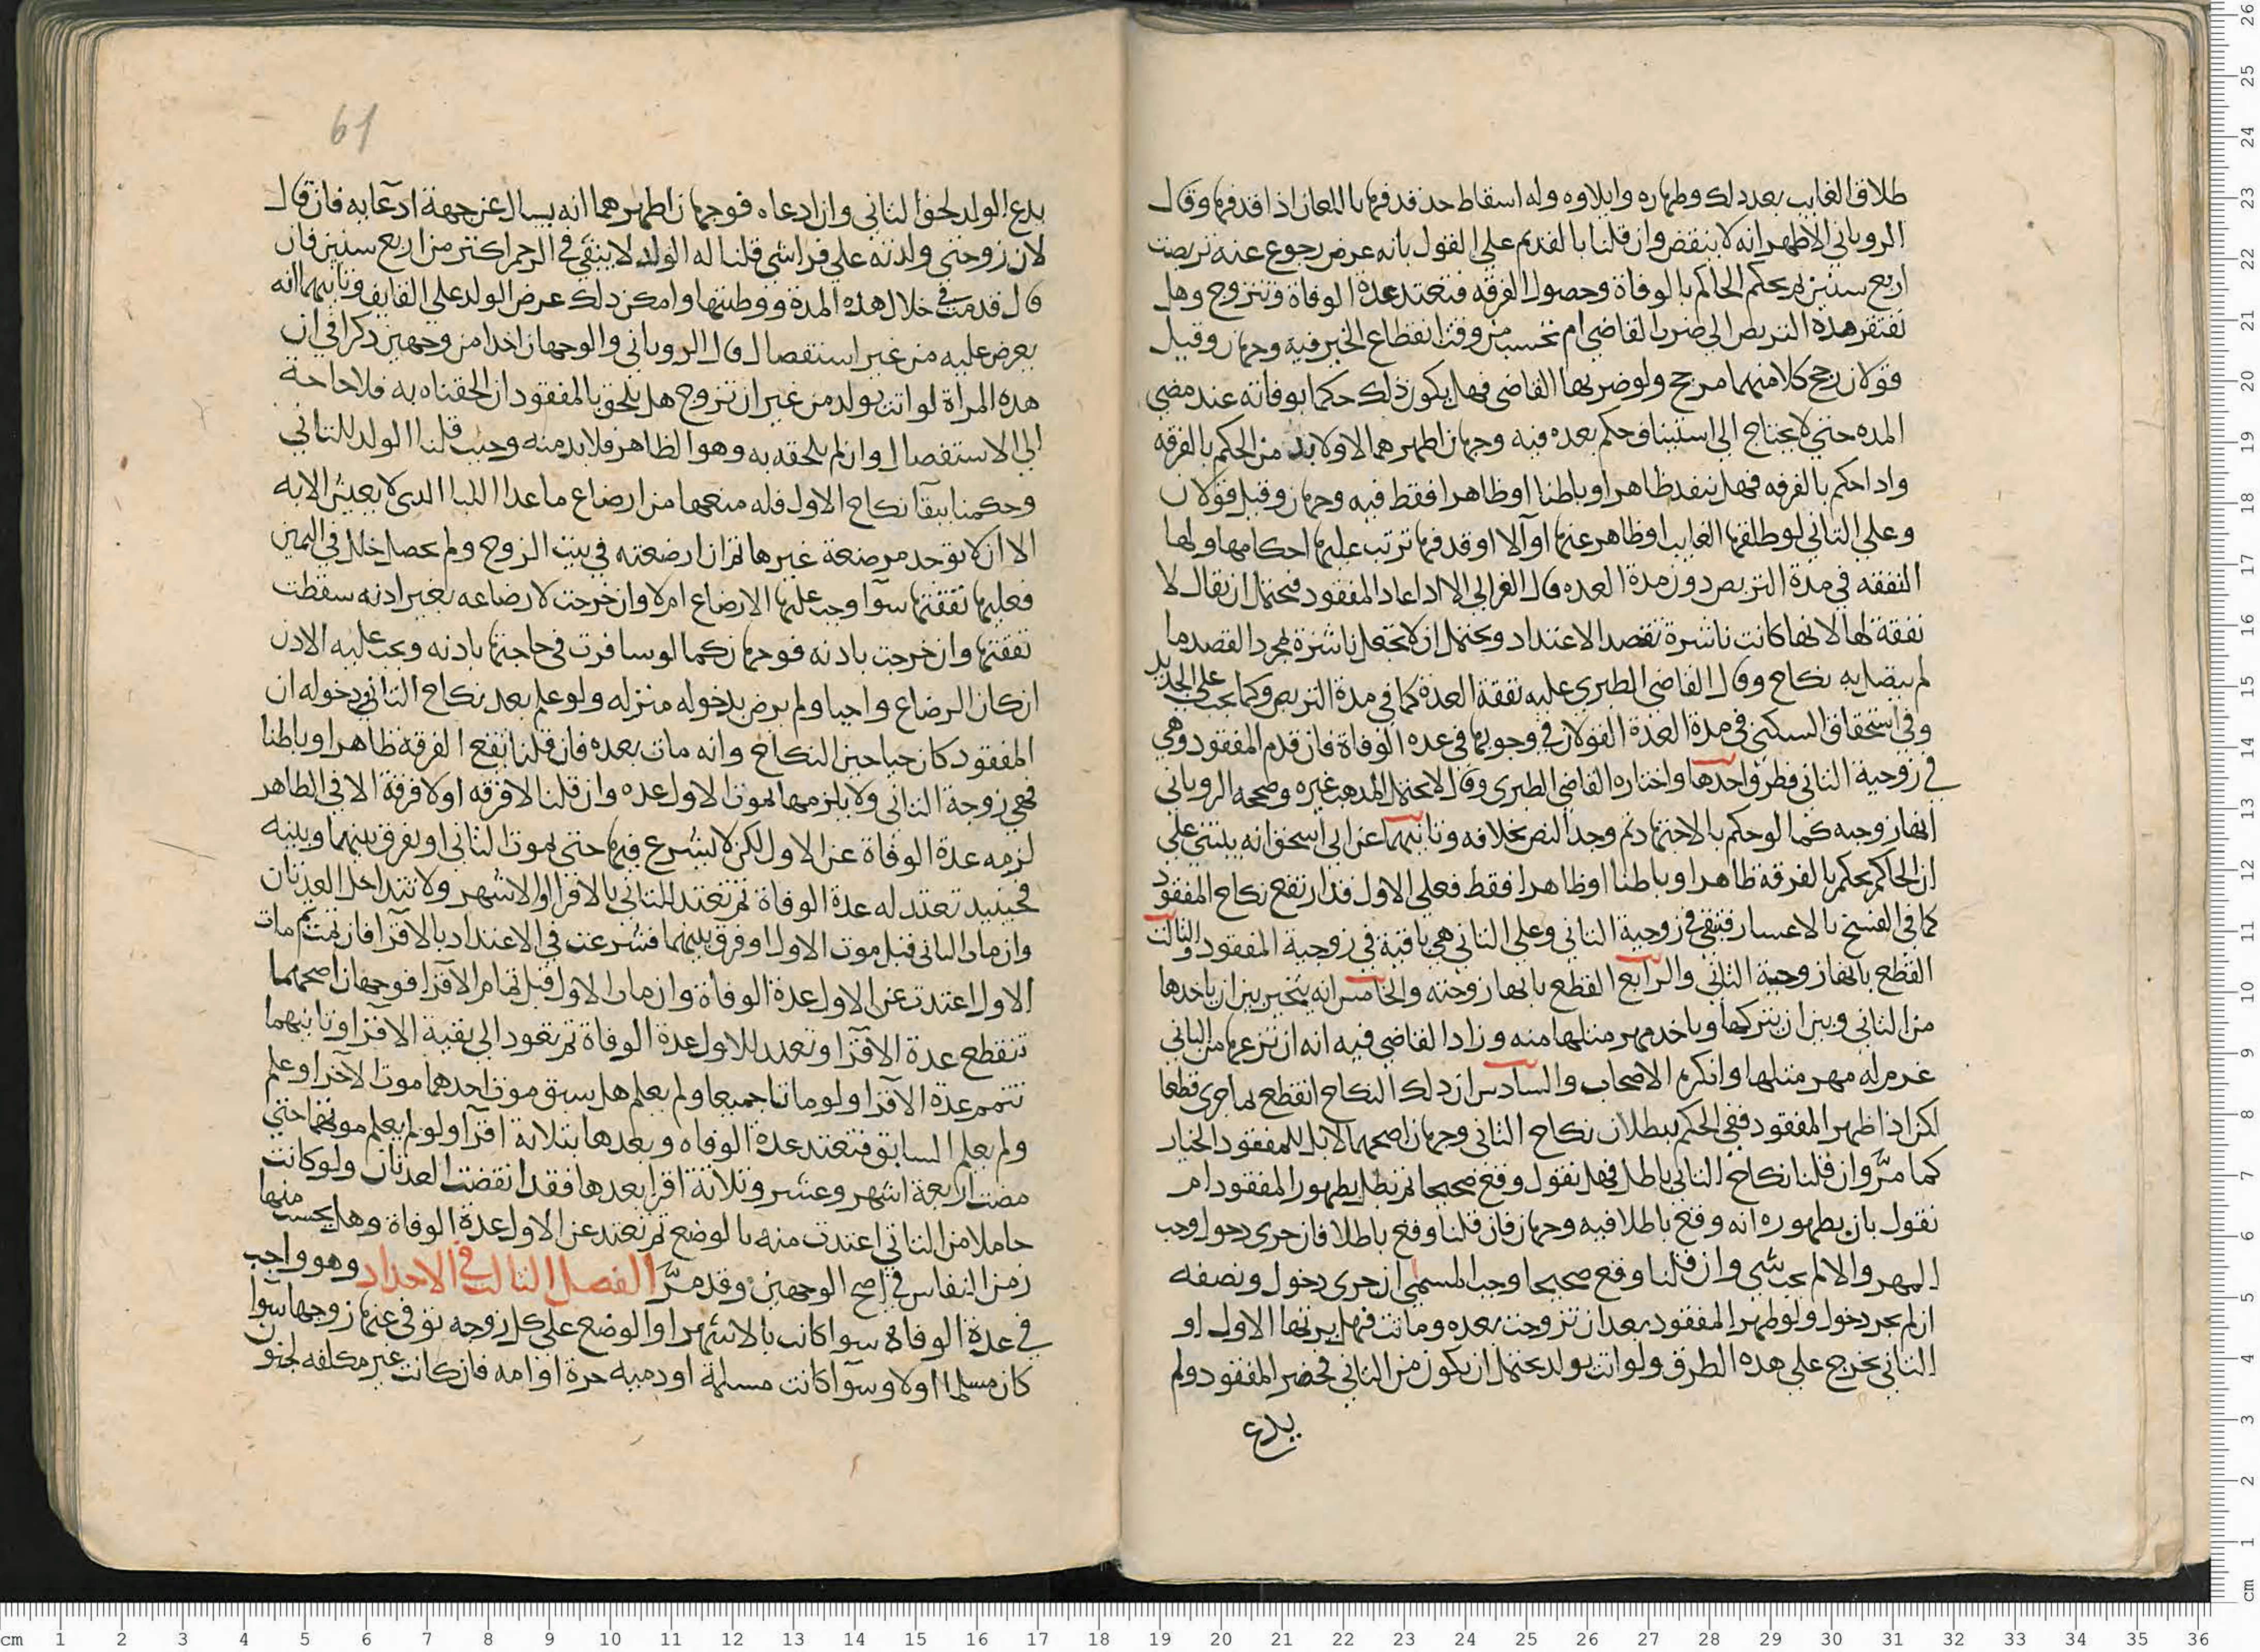 طلاق الغايب بعد ذلك وظهاره وايلاوه وله اسقاط حد قذفها باللعان اذا قذفها وقال
الروياني الاظهر انه لا ينقض وان قلنا بالقديم على القول بانه عرض رجوع عنه تربصت
اربع سنين ثم يحكم الحاكم بالوفاة وحصول الفرقه فتعتد عدة الوفاة وتتزوج وهل
تفتقر هذه التربص الى ضرب القاضي ام تحسب من وقت انقطاع الخبر فيه وجهان وقيل
قولان رجح كلا منهما مرجح ولو ضربها القاضي فهل يكون ذلك حكما بوفاته عند مضي
المده حتى لا يحتاج الى استيناف حكم بعده فيه وجهان اظهرهما لا ولا بد من الحكم بالفرقه
واذا حكم بالفرقه فهل ينفذ ظاهرا وباطنا او ظاهرا فقط فيه وجهان وقيل قولان
وعلى الثاني لو طلقها الغايب او ظاهر عنها او آلا او قذفها ترتب عليها احكامها ولها
النفقه في مدة التربص دون مدة العده قال الغزالي الا اذا عاد المفقود فيحتمل ان يقال لا
نفقة لها لانها كانت ناشزة بقصد الاعتداد ويحتمل ان لا تجعل ناشزة بمجرد القصد ما
لم يتصل به نكاح وقال القاضي الطبري عليه نفقة العدة كما في مدة التربص وكما يجب على الجديد
وفي استحقاق السكنى في مدة العدة القولان في وجوبها في عدة الوفاة فان قدم المفقود وهي
في زوجية الثاني فطرق احدها واختاره القاضي الطبري وقال لا يحتمل المذهب غيره وصححه الروياني
انها زوجيه كما لو حكم بالاجتهاد ثم وجد النص بخلافه وثانيهما عن ابي اسحق انه يبتني على
ان الحاكم يحكم بالفرقة ظاهرا وباطنا او ظاهرا فقط فعلى الاول فقد ارتفع نكاح المفقود
كما في الفسخ بالاعسار فتبقى في زوجية الثاني وعلى الثاني هي باقية في زوجية المفقود والثالث
القطع بانها زوجة الثاني والرابع القطع بانها زوجته والخامس انه يتخير بين ان ياخذها
من الثاني وبين ان يتركها وياخذ مهر مثلها منه وزاد القاضي فيه انه ان نزعها من الثاني
غرم له مهر مثلها وانكره الاصحاب والسادس ان ذلك النكاح انقطع لما جرى قطعا
لكن اذا ظهر المفقود ففي الحكم ببطلان نكاح الثاني وجهان اصحهما لا بل للمفقود الخيار
كما مرّ وان قلنا نكاح الثاني باطل فهل نقول وقع صحيحا ثم بطل بظهور المفقود ام
نقول بان بظهوره انه وقع باطلا فيه وجهان فان قلنا وقع باطلا فان جرى دخول وجب
المهر والا لم يجب شي وان قلنا وقع صحيحا وجب المسمى ان جرى دخول ونصفه
ان لم يجر دخول ولو ظهر المفقود بعد ان تزوجت بعده وماتت فهل يرثها الاول او
الثاني يخرج على هذه الطرق ولو اتت بولد يحتمل ان يكون من الثاني فحضر المفقود ولم
يدع
61
يدع الولد لحق الثاني وان ادعاه فوجهان اظهرهما انه يسال عن جهة ادعايه فان قال
لان زوجتي ولدته على فراشي قلنا له الولد لا يبقى في الرحم اكثر من اربع سنين فان
قال قدمت في خلال هذه المدة ووطيتها وامكن ذلك عرض الولد على القايف وثانيهما انه
يعرض عليه من غير استفصال قال الروياني والوجهان اخذا من وجهين ذكرا في ان
هذه المراة لو اتت بولد من غير ان تتزوج هل يلحق بالمفقود ان الحقناه به فلا حاجة
الى الاستفصال وان لم يلحقه به وهو الظاهر فلا بد منه وحيث قلنا الولد للثاني
وحكمنا ببقآ نكاح الاول فله منعها من ارضاع ما عدا اللبا الذي لا يعيش الا به
الا ان لا توجد مرضعة غيرها ثم ان ارضعته في بيت الزوج ولم يحصل خلل في التمكين
فعليها نفقتها سوآ وجب عليها الارضاع ام لا وان خرجت لارضاعه بغير اذنه سقطت
نفقتها وان خرجت باذنه فوجهان كما لو سافرت في حاجتها باذنه ويجب عليه الاذن
ان كان الرضاع واجبا ولم يرض بدخوله منزله ولو علم بعد نكاح الثاني ودخوله ان
المفقود كان حيا حين النكاح وانه مات بعده فان قلنا تقع الفرقة ظاهرا وباطنا
فهي زوجة الثاني ولا يلزمها لموت الاول عده وان قلنا لا فرقه او لا فرقة الا في الظاهر
لزمه عدة الوفاة عن الاول لكن لا تشرع فيها حتى يموت الثاني او يفرق بينهما وبينه
فحينيذ تعتد له عدة الوفاة ثم تعتد للثاني بالاقرا او الاشهر ولا تتداخل العدتان
وان مات الثاني قبل موت الاول او فرق بينهما فشرعت في الاعتداد بالاقرآ فان تمت ثم مات
الاول اعتدت عن الاول عدة الوفاة وان مات الاول قبل تمام الاقرا فوجهان اصحهما
تنقطع عدة الاقرآ وتعتد للاول عدة الوفاة ثم تعود الى بقية الاقرا وثانيهما
تتمم عدة الاقرا ولو ماتا جميعا ولم يعلم هل سبق موت احدهما موت الآخر او علم
ولم يعلم السابق فتعتد عدة الوفاه وبعدها بثلاثة اقرآ ولو لم يعلم موتهما حتى
مضت اربعة اشهر وعشر وثلاثة اقرا بعدها فقد انقضت العدتان ولو كانت
حاملا من الثاني اعتدت منه بالوضع ثم تعتد عن الاول عدة الوفاة وهل يحسب منها
زمن النفاس في اصح الوجهين وقد مرّ الفصل الثالث في الاحداد وهو واجب
في عدة الوفاة سوا كانت بالاشهر او الوضع على كل زوجه توفي عنها زوجها سوآ
كان مسلما اولا وسوآ كانت مسلمة او ذميه حرة او امه فان كانت غير مكلفه لجنون